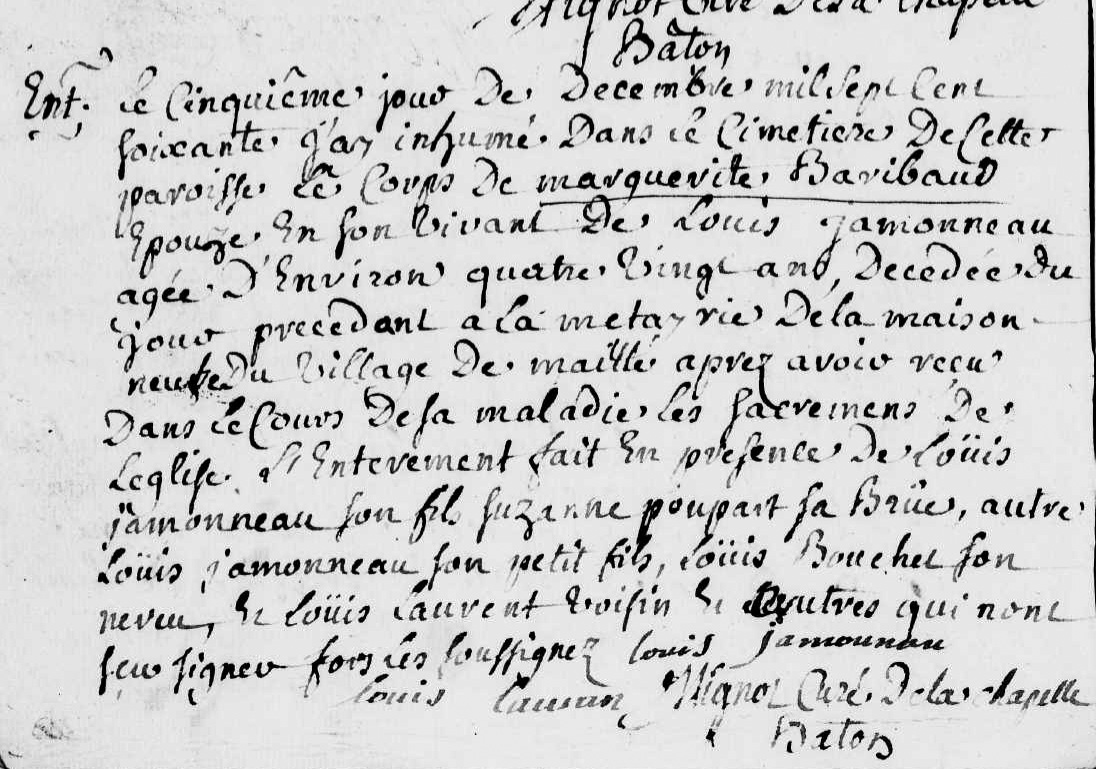 Mignot Curé Dela chapelle
Bâton
Ent. le Cinquiême jour De Decembre mil sept Cent
soixante j'ay inhumé Dans le Cimetiere De Cette
paroisse le Corps De marguerite Baribaud
Epouze En son Vivant De Louis jamonneau
agée D'Environ quatre Vingt ans, Decedée du
jour precedant a la metayrie Dela maison
neufve Du Village De maillé aprez avoir reçu
Dans le Cours De sa maladie les sacremens De
Leglise. L'Enterement fait En presence De Loüis
jamonneau son fils suzanne poupart sa Brüe, autre
Loüis jamonneau son petit fils, Loüis Bouchet son
neveu, Et Loüis Laurent Voisin Et autres qui nont
sçeu signer fors les soussignez louis jamounau
louis lauran Mignot Curé Dela chapelle
Baton